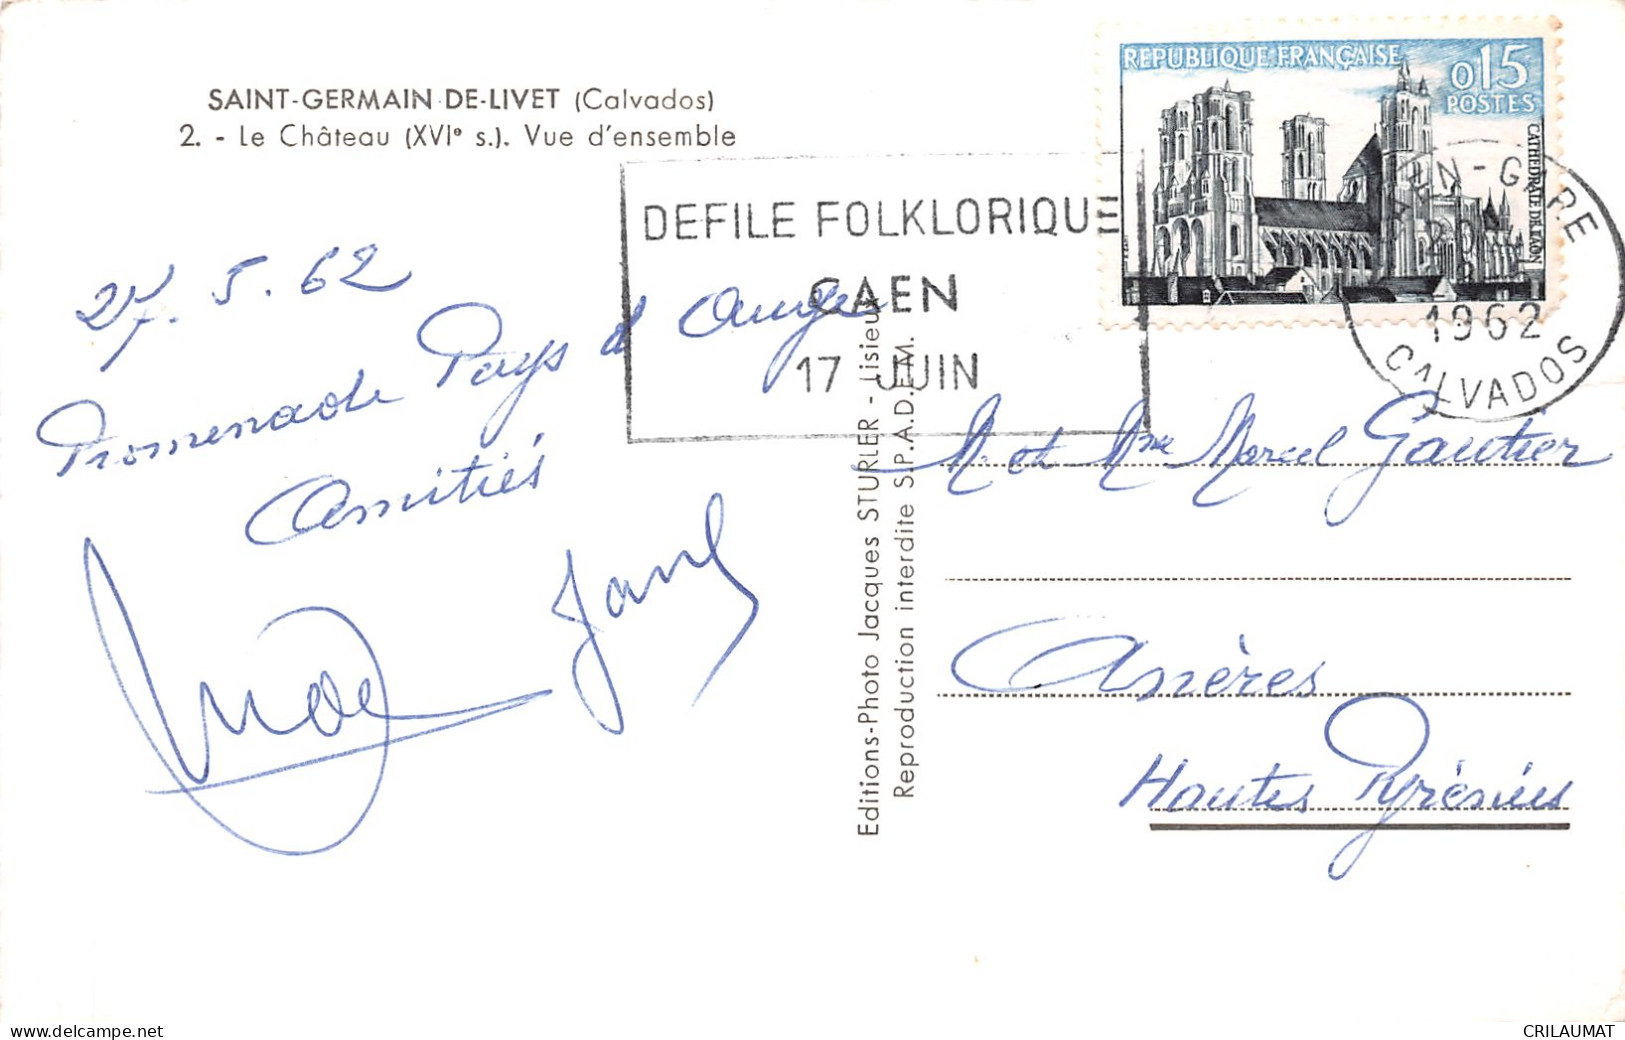 SAINT-GERMAIN-DE-LIVET (Calvados)
2. - Le Château (XVIe s.). Vue d'ensemble
27. 5. 62
Promenade Pays d Auge
Amitiés
DEFILE FOLKLORIQUE
CAEN
17 JUIN
REPUBLIQUE FRANÇAISE
0,15
POSTES
CATHEDRALE DE LAON
CAEN-GARE
1962
CALVADOS
Editions-Photo Jacques STURLER - Lisieux
Reproduction interdite S.P.A.D.E.M.
M. et Mme Marcel Gautier
Anères
Hautes Pyrénées
delcampe.net
CRILAUMAT